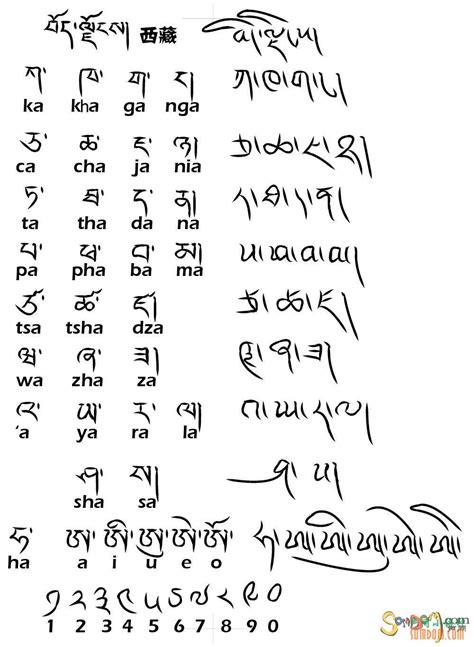 བོད་ལྗོངས། 西藏
ཀ་ ཁ་ ག་ ང། ཀ་ཁ་ག་ང།
ka kha ga nga
ཅ་ ཆ་ ཇ་ ཉ། ཅ་ཆ་ཇ་ཉ།
ca cha ja nia
ཏ་ ཐ་ ད་ ན། ཏ་ཐ་ད་ན།
ta tha da na
པ་ ཕ་ བ་ མ། པ་ཕ་བ་མ།
pa pha ba ma
ཙ་ ཚ་ ཛ། ཙ་ཚ་ཛ།
tsa tsha dza
ཝ་ ཞ་ ཟ། ཝ་ཞ་ཟ།
wa zha za
འ་ ཡ་ ར་ ལ། འ་ཡ་ར་ལ།
'a ya ra la
ཤ་ ས། ཤ་ ས།
sha sa
ཧ་ ཨ་ ཨི་ ཨུ་ ཨེ་ ཨོ་ ཧ་ཨ་ཨི་ཨུ་ཨེ་ཨོ།
ha a i u e o
༡ ༢ ༣ ༤ ༥ ༦ ༧ ༨ ༩ ༠
1 2 3 4 5 6 7 8 9 0
SUMDOM.com